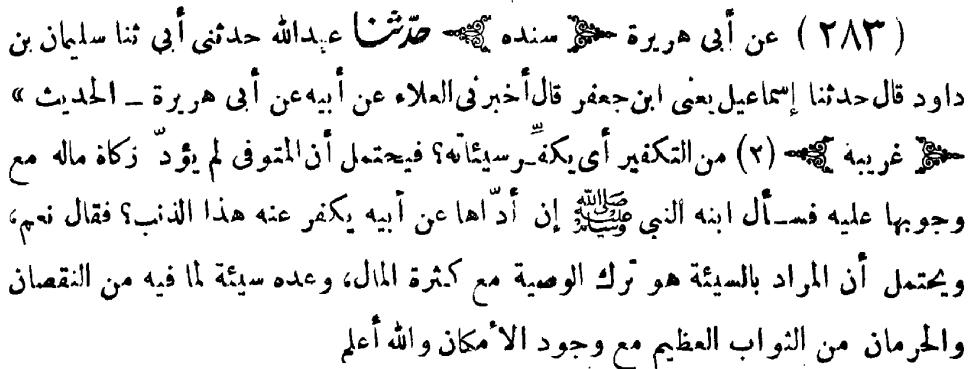 ( ٢٨٣ ) عن أبى هريرة ﴿ سنده ﴾ حدّثنا عبدالله حدثنى أبي ثنا سليمان بن
داود قال حدثنا إسماعيل يعنى ابن جعفر قال أخبرنى العلاء عن أبيه عن أبى هريرة ــ الحديث »
﴿ غريبه ﴾ (٢) من التكفير أى يكفّر سيئاته؟ فيحتمل أن المتوفى لم يؤدّ زكاة ماله مع
وجوبها عليه فسأل ابنه النبي ﷺ إن أدّاها عن أبيه يكفر عنه هذا الذنب؟ فقال نعم،
ويحتمل أن المراد بالسيئة هو ترك الوصية مع كثرة المال، وعده سيئة لما فيه من النقصان
والحرمان من الثواب العظيم مع وجود الأمكان والله أعلم